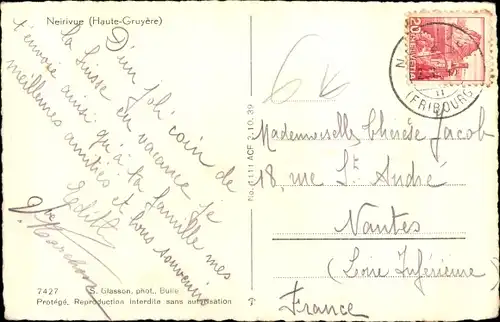 Neirivue (Haute-Gruyère)
D'un joli coin de
la Suisse en vacance je
t'envoie ainsi qu'à ta famille mes
meilleures amitiés et bons souvenirs
Edith
Marchand
7427 S. Glasson, phot., Bulle
Protégé, Reproduction interdite sans autorisation
No. 1111 ACF 2.10.39
HELVETIA
20
(FRIBOURG)
Mademoiselle Thérèse Jacob
18, rue St. André
Nantes
(Loire Inférieure)
France